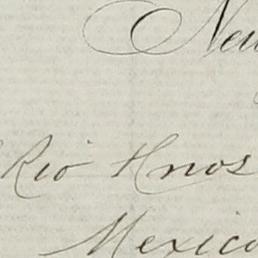 New
Rio Hnos
Mexico